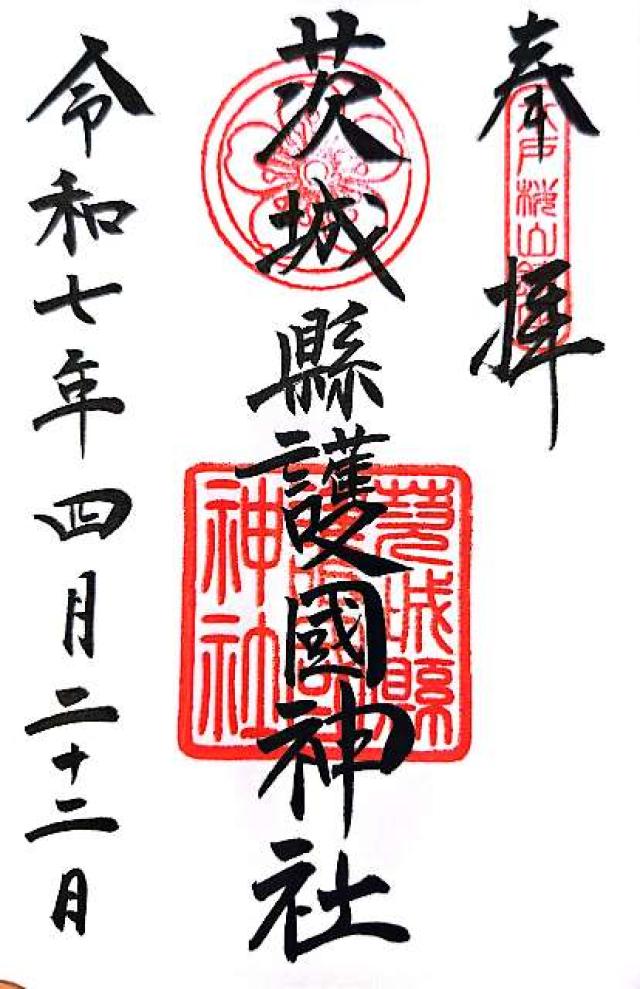 奉拝
水戸桜山鎮座
茨城縣護國神社
茨城縣
護國
神社
令和七年四月二十二日